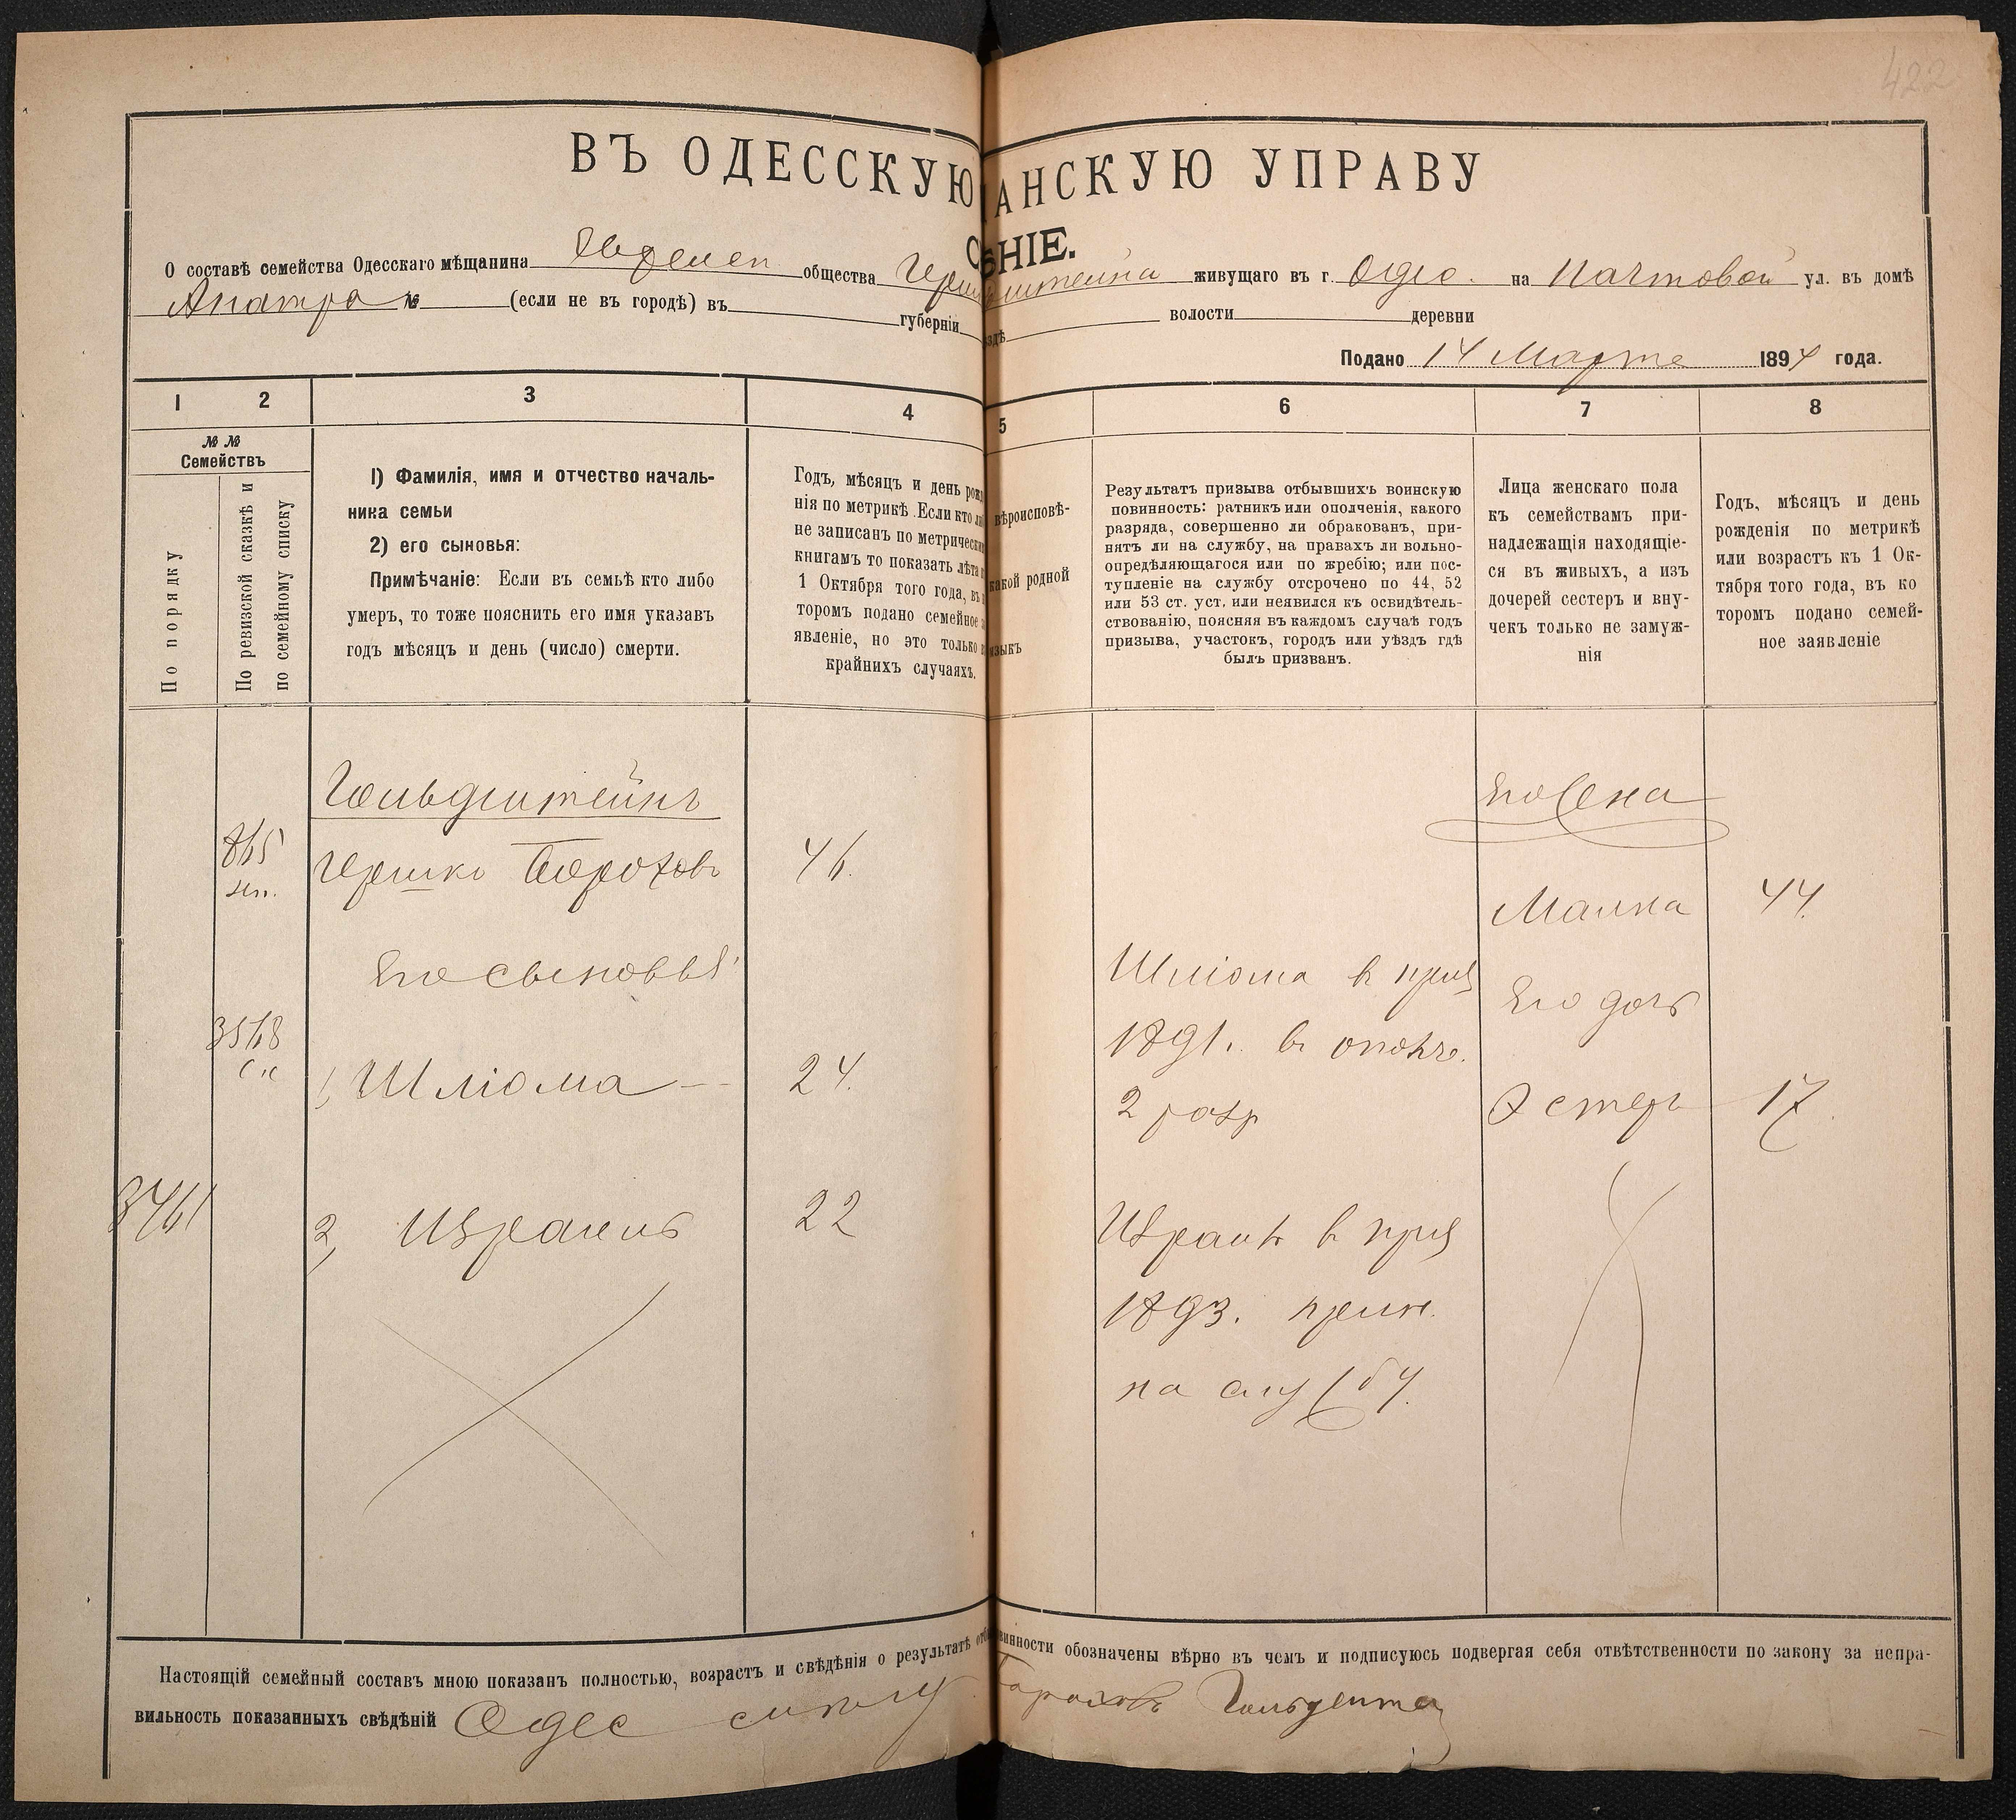 422
ВЪ ОДЕССКУЮ АНСКУЮ УПРАВУ
НІЕ.
О составѣ семейства Одесскаго мѣщанина Еврейск общества живущаго въ г. Одес. на Почтовой ул. въ домѣ
Анатра № (если не въ городѣ) въ губерніи здѣ волости деревни
Подано 14 Марта 1894 года.
1 2 3 4 5 6 7 8
№ №
Семействъ
По порядку
По ревизской сказкѣ и
по семейному списку
1) Фамилія, имя и отчество началь-
ника семьи
2) его сыновья:
Примѣчаніе: Если въ семьѣ кто либо
умеръ, то тоже пояснить его имя указавъ
годъ мѣсяцъ и день (число) смерти.
Годъ, мѣсяцъ и день рож
нія по метрикѣ. Если кто
не записанъ по метрически
книгамъ то показать лѣта
1 Октября того года, въ
торомъ подано семейное
явленіе, но это только
крайнихъ случаяхъ.
вѣроисповѣ-
какой родной
языкъ
Результатъ призыва отбывшихъ воинскую
повинность: ратникъ или ополченія, какого
разряда, совершенно ли обракованъ, при-
нятъ ли на службу, на правахъ ли вольно-
опредѣляющагося или по жребію; или пос-
тупленіе на службу отсрочено по 44, 52
или 53 ст. уст. или неявился къ освидѣтель-
ствованію, поясняя въ каждомъ случаѣ годъ
призыва, участокъ, городъ или уѣздъ гдѣ
былъ призванъ.
Лица женскаго пола
къ семействамъ при-
надлежащія находящіе-
ся въ живыхъ, а изъ
дочерей сестеръ и вну-
чекъ только не замуж-
нія
Годъ, мѣсяцъ и день
рожденія по метрикѣ
или возрастъ къ 1 Ок-
тября того года, въ ко
торомъ подано семей-
ное заявленіе
Гольдштейнъ
Его Жена
865
Гершко Борохов 46.
Малка 44.
Его сыновья
Шліома в приз
Его дочь
3568
1891. в ополч.
1, Шліома 24.
2 разр
Эстер 17
3461
2, Израиль 22
Израиль в приз
1893. прин.
на службу.
Настоящій семейный составъ мною показанъ полностью, возрастъ и свѣдѣнія о результатѣ инности обозначены вѣрно въ чемъ и подписуюсь подвергая себя отвѣтственности по закону за непра-
вильность показанныхъ свѣдѣній Одес